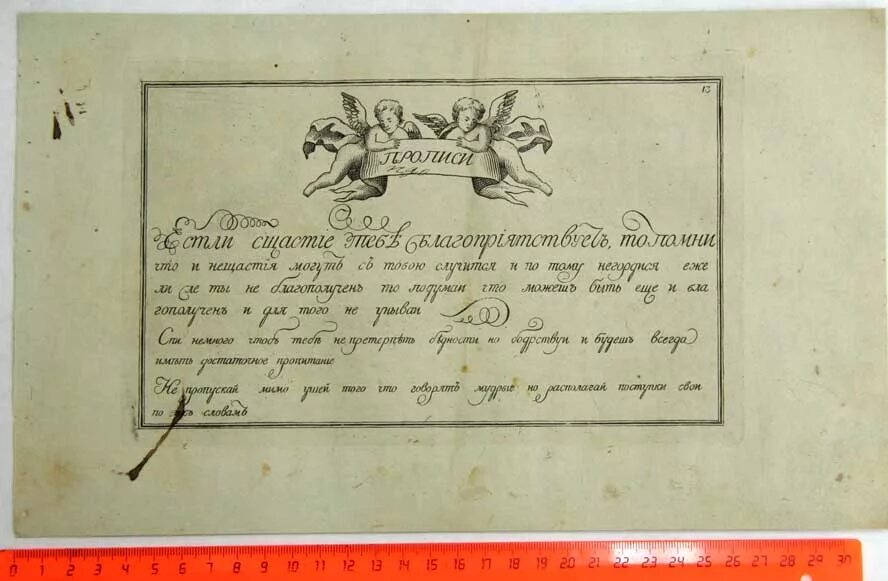 13
ПРОПИСИ
Естли сщастїе тебѣ благопрїятствуетъ, то помни
что и нещастїя могутъ съ тобою случится и по тому негордися еже
ли же ты не благополученъ то подумаи что можешъ быть еще и бла
гополученъ и для того не унываи
Спи немного чтобъ тебѣ не претерпѣть бѣдности но бодрствуи и будешъ всегда
имѣть достаточное пропитанїе
Не пропускай мимо ушей того что говорятъ мудрые но располагай поступки свои
по ихъ словамъ
0 1 2 3 4 5 6 7 8 9 10 11 12 13 14 15 16 17 18 19 20 21 22 23 24 25 26 27 28 29 30